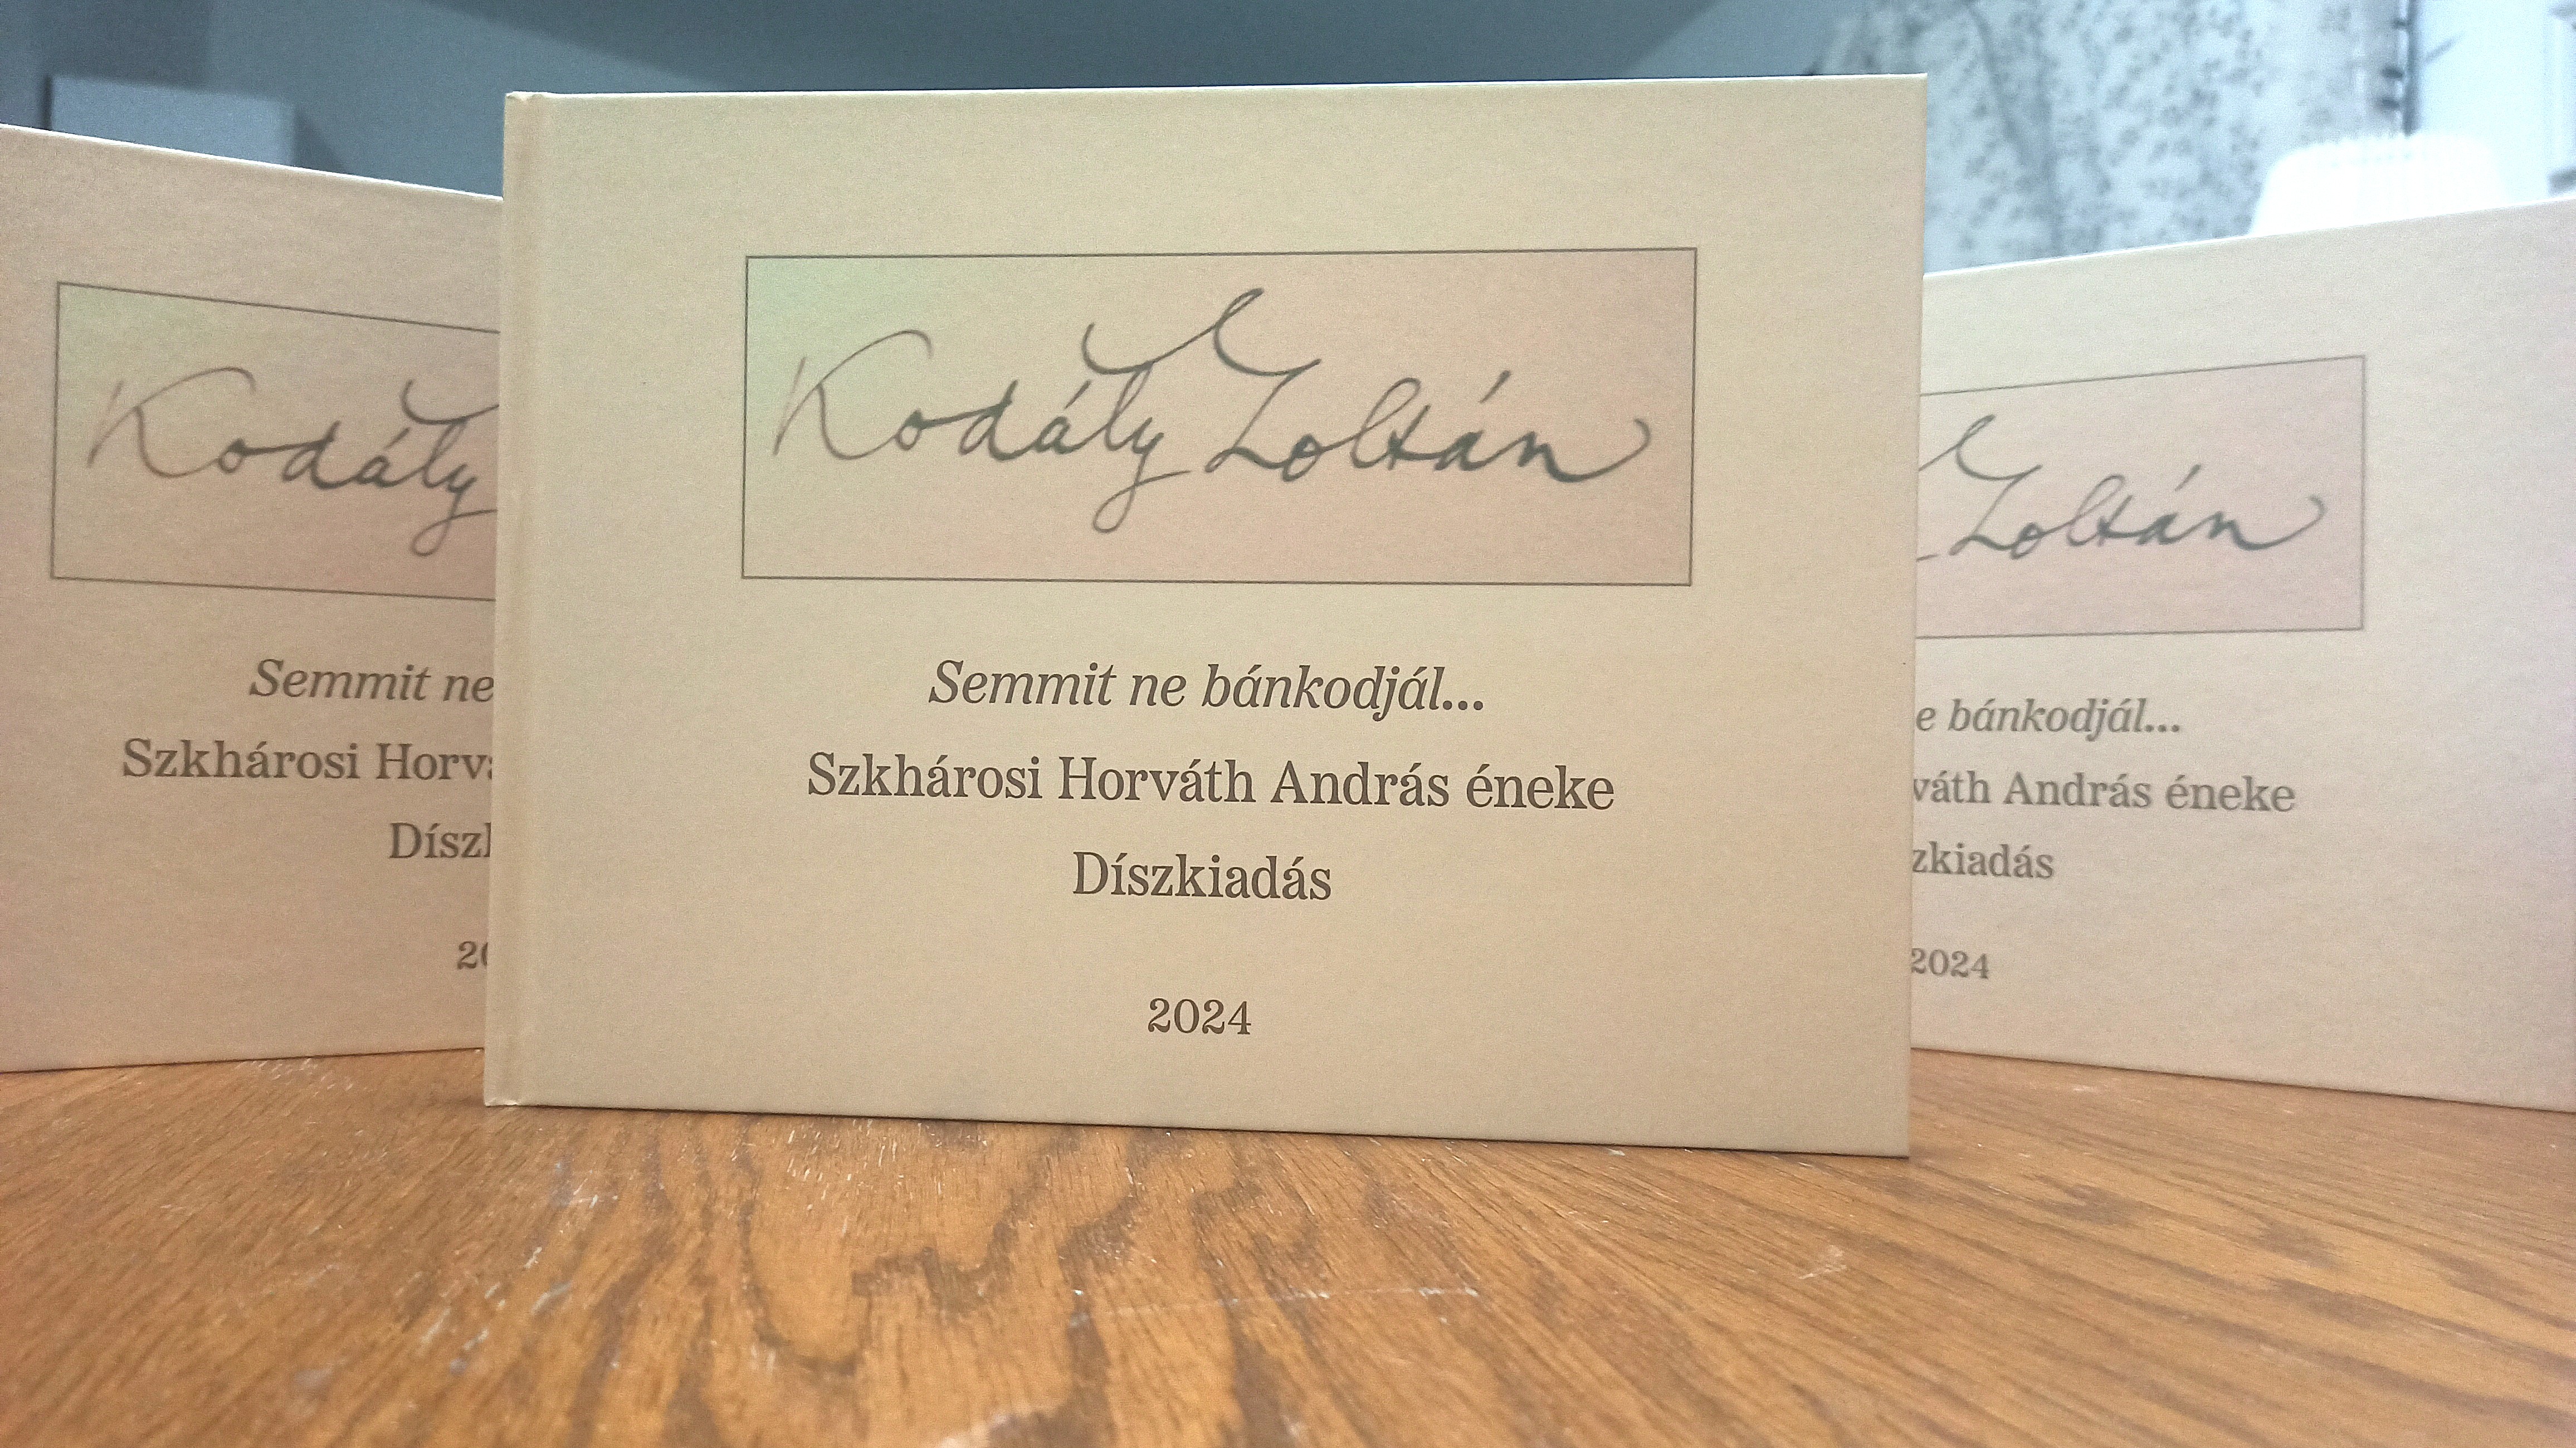 Kodály Zoltán
Semmit ne bánkodjál...
Szkhárosi Horváth András éneke
Díszkiadás
2024
Kodály
Semmit ne
Szkhárosi Horvá
Díszk
20
Zoltán
e bánkodjál...
váth András éneke
zkiadás
2024